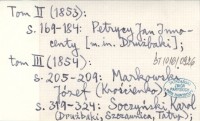 Tom II (1853):
s. 169-184: Petrycy Jan Inno-
centy [m.in. Drużbaki];
Tom III (1854):
s. 205-209: Markowski
Józef (Krościenko);
s. 319-324: Soczyński Karol
(Drużbaki, Szczawnica, Tatry).